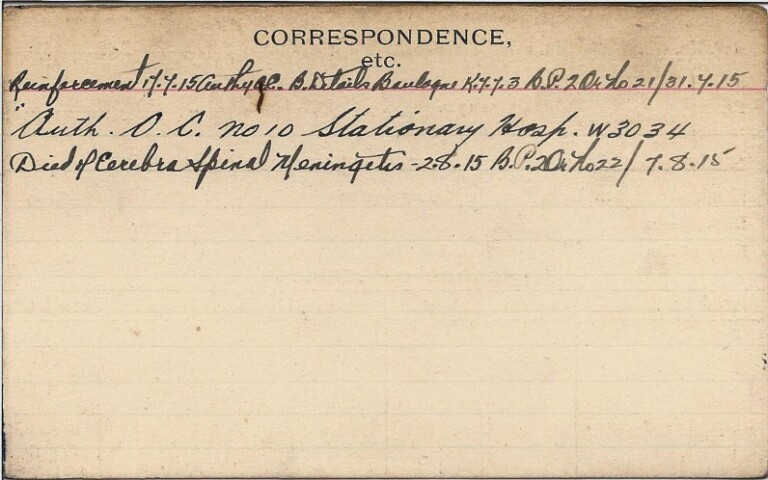 CORRESPONDENCE,
etc.
Reinforcement 17.7.15 Auth OC. B. Details Boulogne K.7.7.3 B.P. 2 Or No 21/31.7.15
" Auth. O.C. no 10 Stationary Hosp. W3034
Died of Cerebra Spinal Meningetis - 2.8.15 B.P. 2 Or No 22/7.8.15